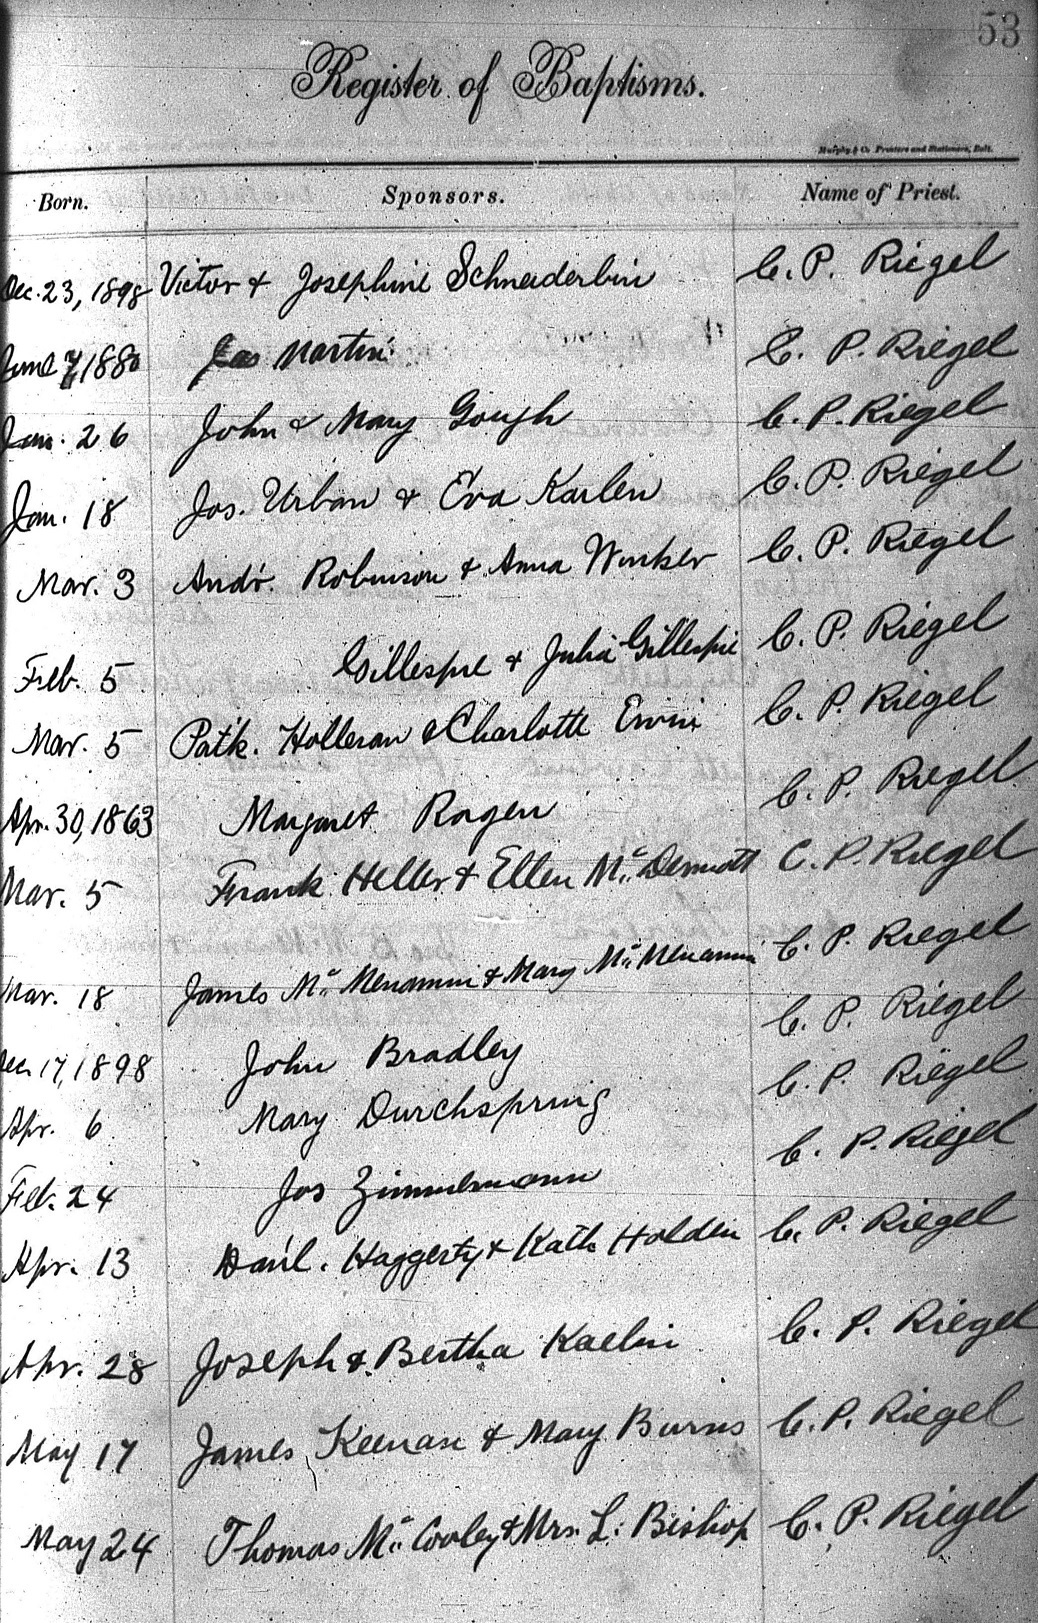 53
Register of Baptisms.
Murphy & Co. Printers and Stationers, Balt.
Born. Sponsors. Name of Priest.
Dec. 23, 1898 Victor & Josephine Schneiderbin C. P. Riegel
June 7, 1880 Jas Martin C. P. Riegel
Jan. 26 John & Mary Gough C. P. Riegel
Jan. 18 Jos. Urban & Eva Karlen C. P. Riegel
Mar. 3 Andr. Robinson & Anna Winkler C. P. Riegel
Feb. 5 Gillespie & Julia Gillespie C. P. Riegel
Mar. 5 Patk. Holleran & Charlotte Ervin C. P. Riegel
Apr. 30, 1863 Margaret Rogen C. P. Riegel
Mar. 5 Frank Heller & Ellen McDermott C. P. Riegel
Mar. 18 James McMenamin & Mary McMenamin C. P. Riegel
Dec. 17, 1898 John Bradley C. P. Riegel
Apr. 6 Mary Durchspring C. P. Riegel
Feb. 24 Jos Zimmermann C. P. Riegel
Apr. 13 Danl. Haggerty & Kath Holden C. P. Riegel
Apr. 28 Joseph & Bertha Kaelin C. P. Riegel
May 17 James Keenan & Mary Burns C. P. Riegel
May 24 Thomas McCooley & Mrs. L. Bishop C. P. Riegel